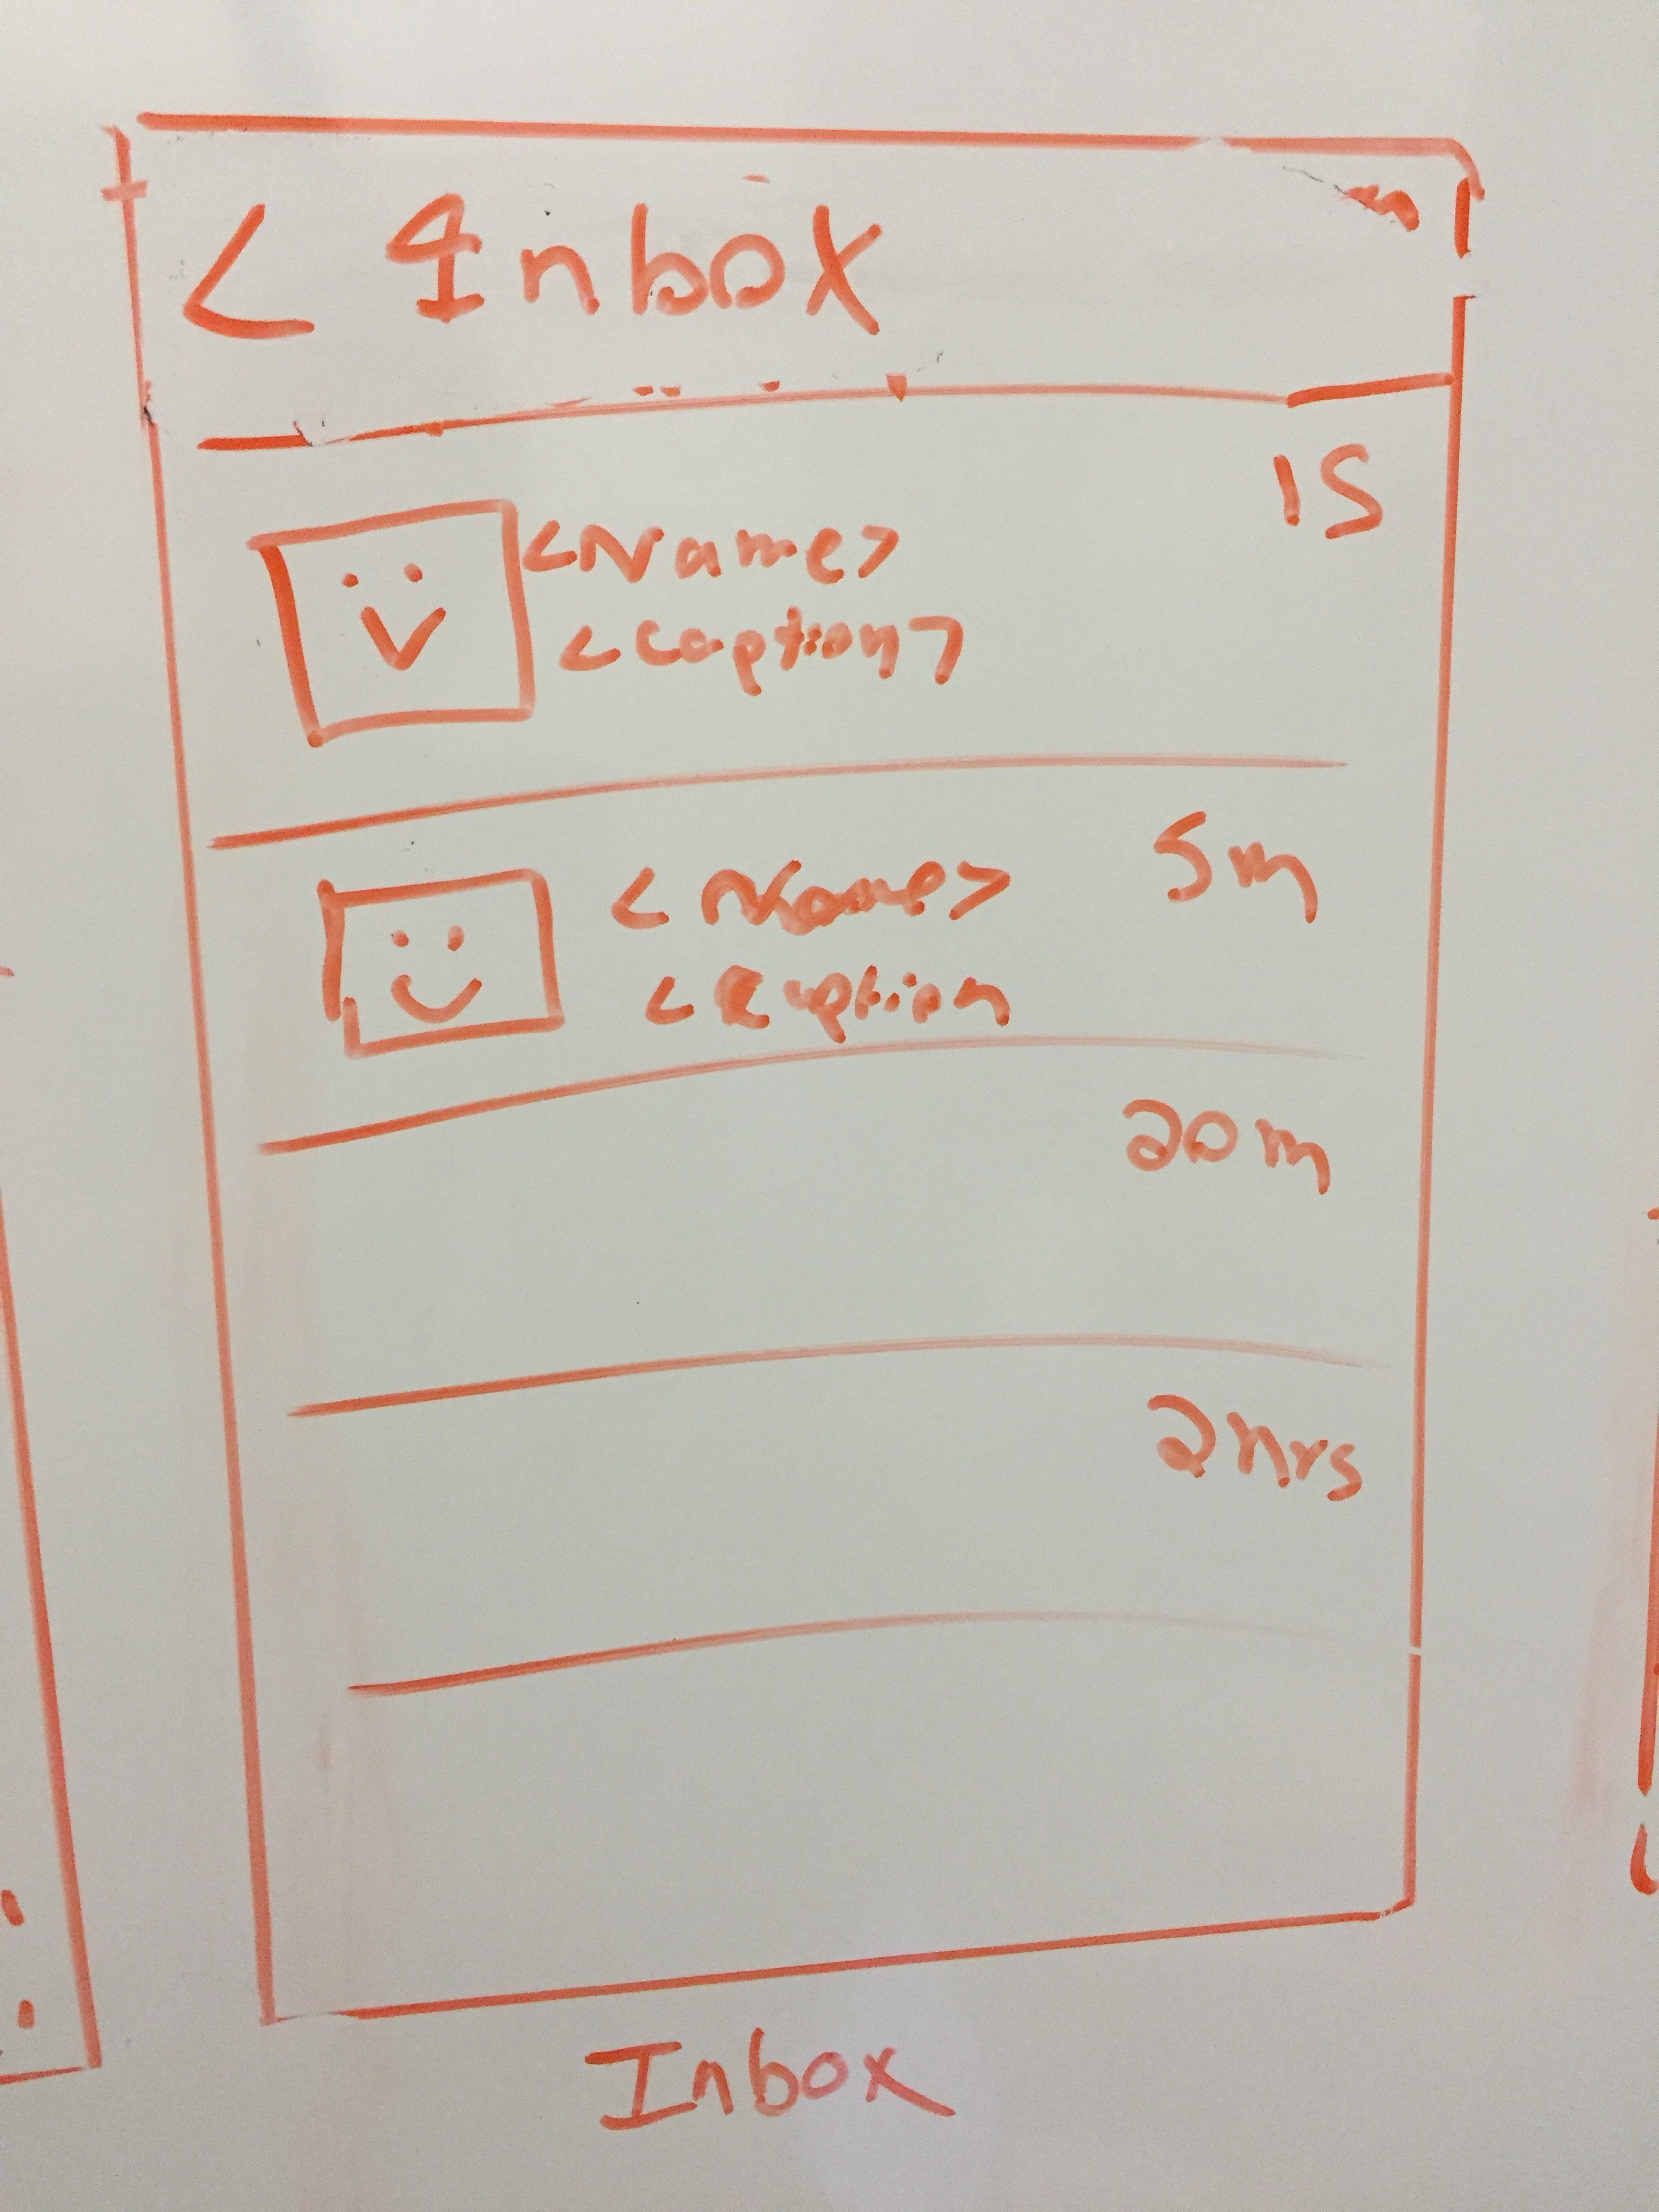 < Inbox
1S
<Name>
<Caption>
5m
<Name>
<Caption
20m
2hrs
Inbox